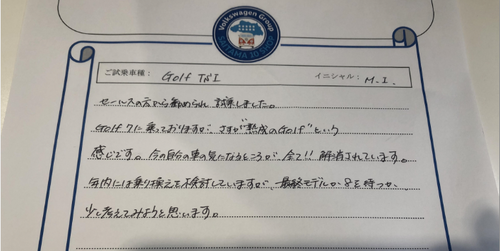 Volkswagen Group
ご試乗車種： Golf TSI イニシャル： M.I.
セールスの方から勧められ、試乗しました。
Golf 7に乗っておりますが、さすが"熟成のGolf"という
感じです。今の自分の車の気になるところが、全て!! 解消されています。
年内には乗り換えを検討していますが、最終モデルか8を待つか、
少し考えてみようと思います。